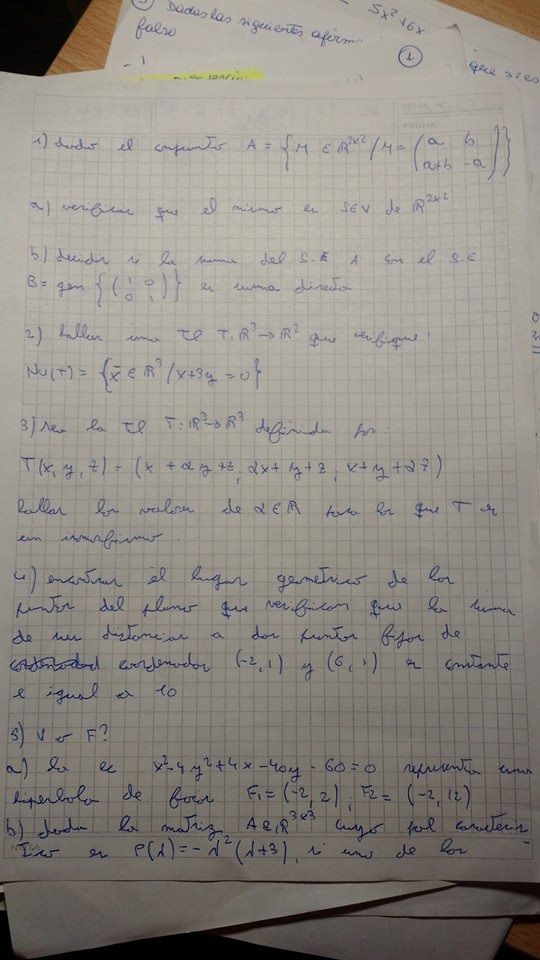 5x² + 6x
3) Dadas las siguientes afirm
falso
①
que si es
HOJA N°
FECHA
1) dado el conjunto A = { M ∈ ℝ²ˣ² / M = ( a b
a+b -a ) }
a) verificar que el mismo es SEV de ℝ²ˣ²
b) decidir si la suma del S.E A con el S.E
B = gen { ( 1 0
0 1 ) } es suma directa
2) hallar una Tl T: ℝ³ → ℝ² que verifique:
Nu(T) = { x̄ ∈ ℝ³ / x+3y = 0 }
3) sea la Tl T: ℝ³ → ℝ³ definida por:
T(x, y, z) = (x + αy + z; αx + y + z; x + y + αz)
hallar los valores de α ∈ ℝ para los que T es
un isomorfismo.
4) encontrar el lugar geométrico de los
puntos del plano que verifican que la suma
de sus distancias a dos puntos fijos de
coordenadas (-2,1) y (6,1) es constante
e igual a 10
5) V o F?
a) la ec x² - 4y² + 4x - 40y - 60 = 0 representa una
hipérbola de focos F₁ = (-2, 2), F₂ = (-2, 12)
b) dada la matriz A ∈ ℝ³ˣ³ cuyo pol caracterís
tico es P(λ) = -λ² (λ+3), si uno de los